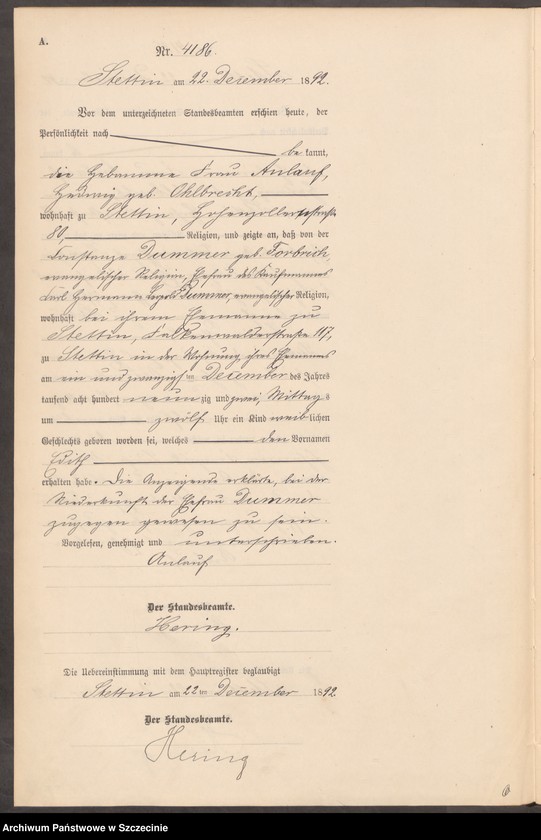 A.
Nr. 4186.
Stettin am 22. Dezember 1892.
Vor dem unterzeichneten Standesbeamten erschien heute, der
Persönlichkeit nach
bekannt,
die Hebamme Frau Anlauf,
Hedwig geb. Ohlbrecht,
wohnhaft zu Stettin, Hohenzollernstraße
80, Religion, und zeigte an, daß von der
Constanze Dummer geb. Torbrich,
evangelischer Religion, Ehefrau des Kaufmannes
Carl Hermann Dummer, evangelischer Religion,
wohnhaft bei ihrem Ehemanne zu
Stettin, Falkenwalderstraße 117,
zu Stettin in der Wohnung ihres Ehemannes
am ein und zwanzigsten Dezember des Jahres
tausend acht hundert neunzig und zwei, Mittags
um zwölf Uhr ein Kind weiblichen
Geschlechts geboren worden sei, welches den Vornamen
Edith
erhalten habe. Die Anzeigende erklärte, bei der
Niederkunft der Ehefrau Dummer
zugegen gewesen zu sein.
Vorgelesen, genehmigt und unterschrieben.
Anlauf
Der Standesbeamte.
Hering.
Die Uebereinstimmung mit dem Hauptregister beglaubigt
Stettin am 22ten Dezember 1892
Der Standesbeamte.
Hering
Archiwum Państwowe w Szczecinie